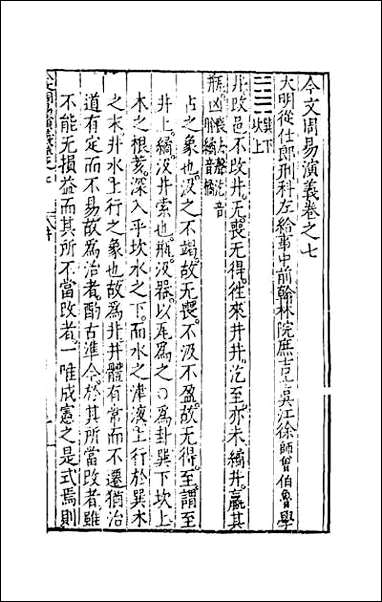 今文周易演義卷之七
大明從仕郎刑科左給事中前翰林院庶吉士吳江徐師曾伯魯學
巽下
坎上
井改邑不改井无喪无得往來井井汔至亦未繘井羸其
瓶凶
占之象也汲之不竭故无喪不汲不盈故无得至謂至
井上繘汲井索也瓶汲器以瓦爲之○爲卦巽下坎上
木之根荄深入乎坎水之下而水之津液上行於巽木
之末井水上行之象也故爲井井體有常而不遷猶治
道有定而不易故爲治者酌古準今於其所當改者雖
不能无損益而其所不當改者一唯成憲之是式焉則